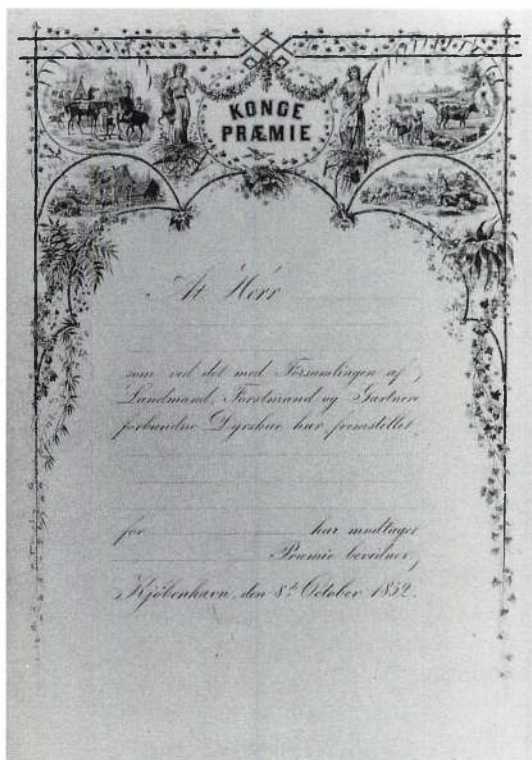 KONGE
PRÆMIE
At Herr
som ved det med Forsamlingen af
Landmænd, Forstmænd og Gartnere
forbundne Dyrskue har fremstillet
for har modtaget
Præmie bevidner,
Kjöbenhavn, den 8de October 1852.